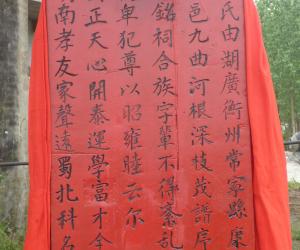 氏由湖廣衡州常寧縣康
邑九曲河根深枝茂譜序
銘祠合族字輩不得紊乱
卑犯尊以昭雍睦云尔
正天心開泰運學富才全
南孝友家聲遠蜀北科名